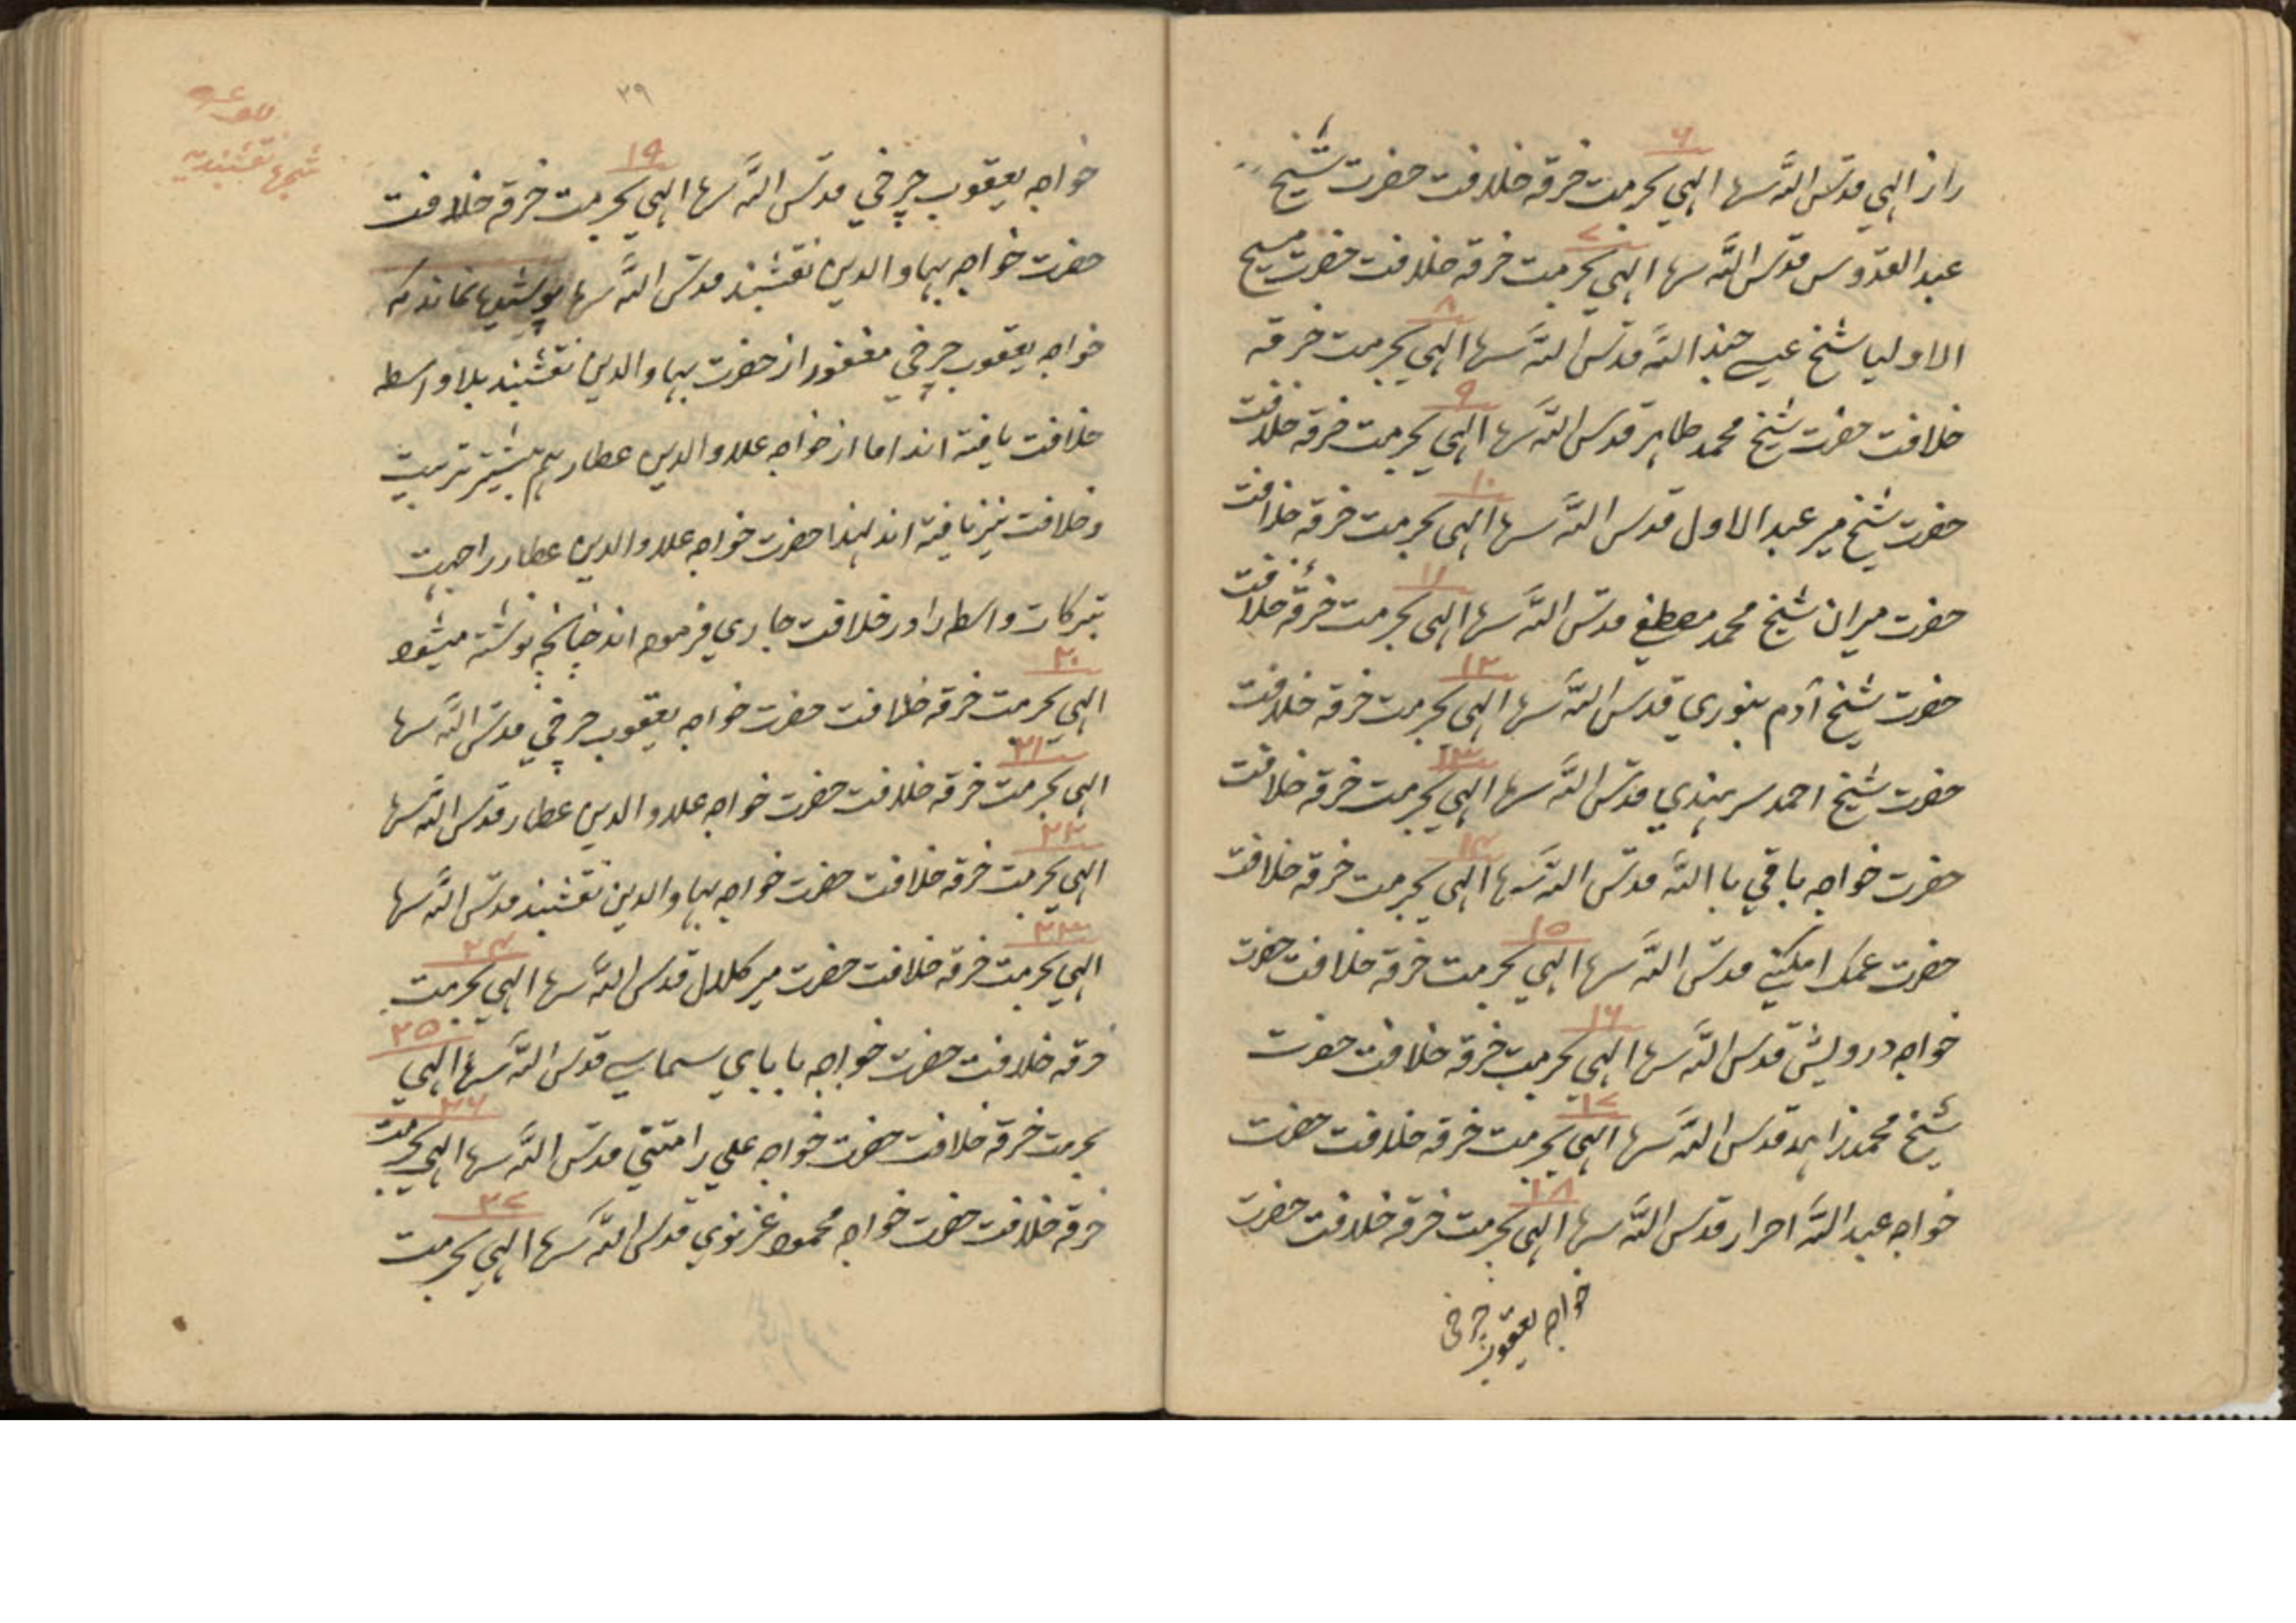 ۶
راز الهی قدس الله سرها الهی بحرمت خرقه خلافت حضرت شیخ
۷
عبد القدوس قدس الله سرها الهی بحرمت خرقه خلافت حضرت مسیح
۸
الاولیا شیخ عیسے جند الله قدس الله سرها الهی بحرمت خرقه
۹
خلافت حضرت شیخ محمد طاهر قدس الله سرها الهی بحرمت خرقه خلافت
۱۰
حضرت شیخ میر عبد الاول قدس الله سرها الهی بحرمت خرقه خلافت
۱۱
حضرت میران شیخ محمد مصطفی قدس الله سرها الهی بحرمت خرقه خلافت
۱۲
حضرت شیخ آدم بنوری قدس الله سرها الهی بحرمت خرقه خلافت
۱۳
حضرت شیخ احمد سرهندی قدس الله سرها الهی بحرمت خرقه خلافت
۱۴
حضرت خواجه باقی با الله قدس الله سرها الهی بحرمت خرقه خلافت
۱۵
حضرت عمک امکنے قدس الله سرها الهی بحرمت خرقه خلافت حضرت
۱۶
خواجه درویش قدس الله سرها الهی بحرمت خرقه خلافت حضرت
۱۷
شیخ محمد زاهد قدس الله سرها الهی بحرمت خرقه خلافت حضرت
۱۸
خواجه عبد الله احرار قدس الله سرها الهی بحرمت خرقه خلافت حضرت
خواجه یعقوب چرخی
۳۹
شجره نقشبندیه
۱۹
خواجه یعقوب چرخی قدس الله سرها الهی بحرمت خرقه خلافت
حضرت خواجه بهاو الدین نقشبند قدس الله سرها پوشیده نماند که
خواجه یعقوب چرخی مغفور از حضرت بهاو الدین نقشبند بلا واسطه
خلافت یافته اند اما از خواجه علاو الدین عطار هم بیشتر تربیت
و خلافت نیز یافته اند لهذا حضرت خواجه علاو الدین عطار را جهت
تبرکات واسطه را در خلافت جاری فرموده اند چنانچه نوشته میشود
۲۰
الهی بحرمت خرقه خلافت حضرت خواجه یعقوب چرخی قدس الله سرها
۲۱
الهی بحرمت خرقه خلافت حضرت خواجه علاو الدین عطار قدس الله سرها
۲۲
الهی بحرمت خرقه خلافت حضرت خواجه بهاو الدین نقشبند قدس الله سرها
۲۳ ۲۴
الهی بحرمت خرقه خلافت حضرت میر کلال قدس الله سرها الهی بحرمت
۲۵
خرقه خلافت حضرت خواجه بابای سماسے قدس الله سرها الهی
۲۶
بحرمت خرقه خلافت حضرت خواجه علی رامتنی قدس الله سرها الهی بحرمت
۲۷
خرقه خلافت حضرت خواجه محمود غزنوی قدس الله سرها الهی بحرمت